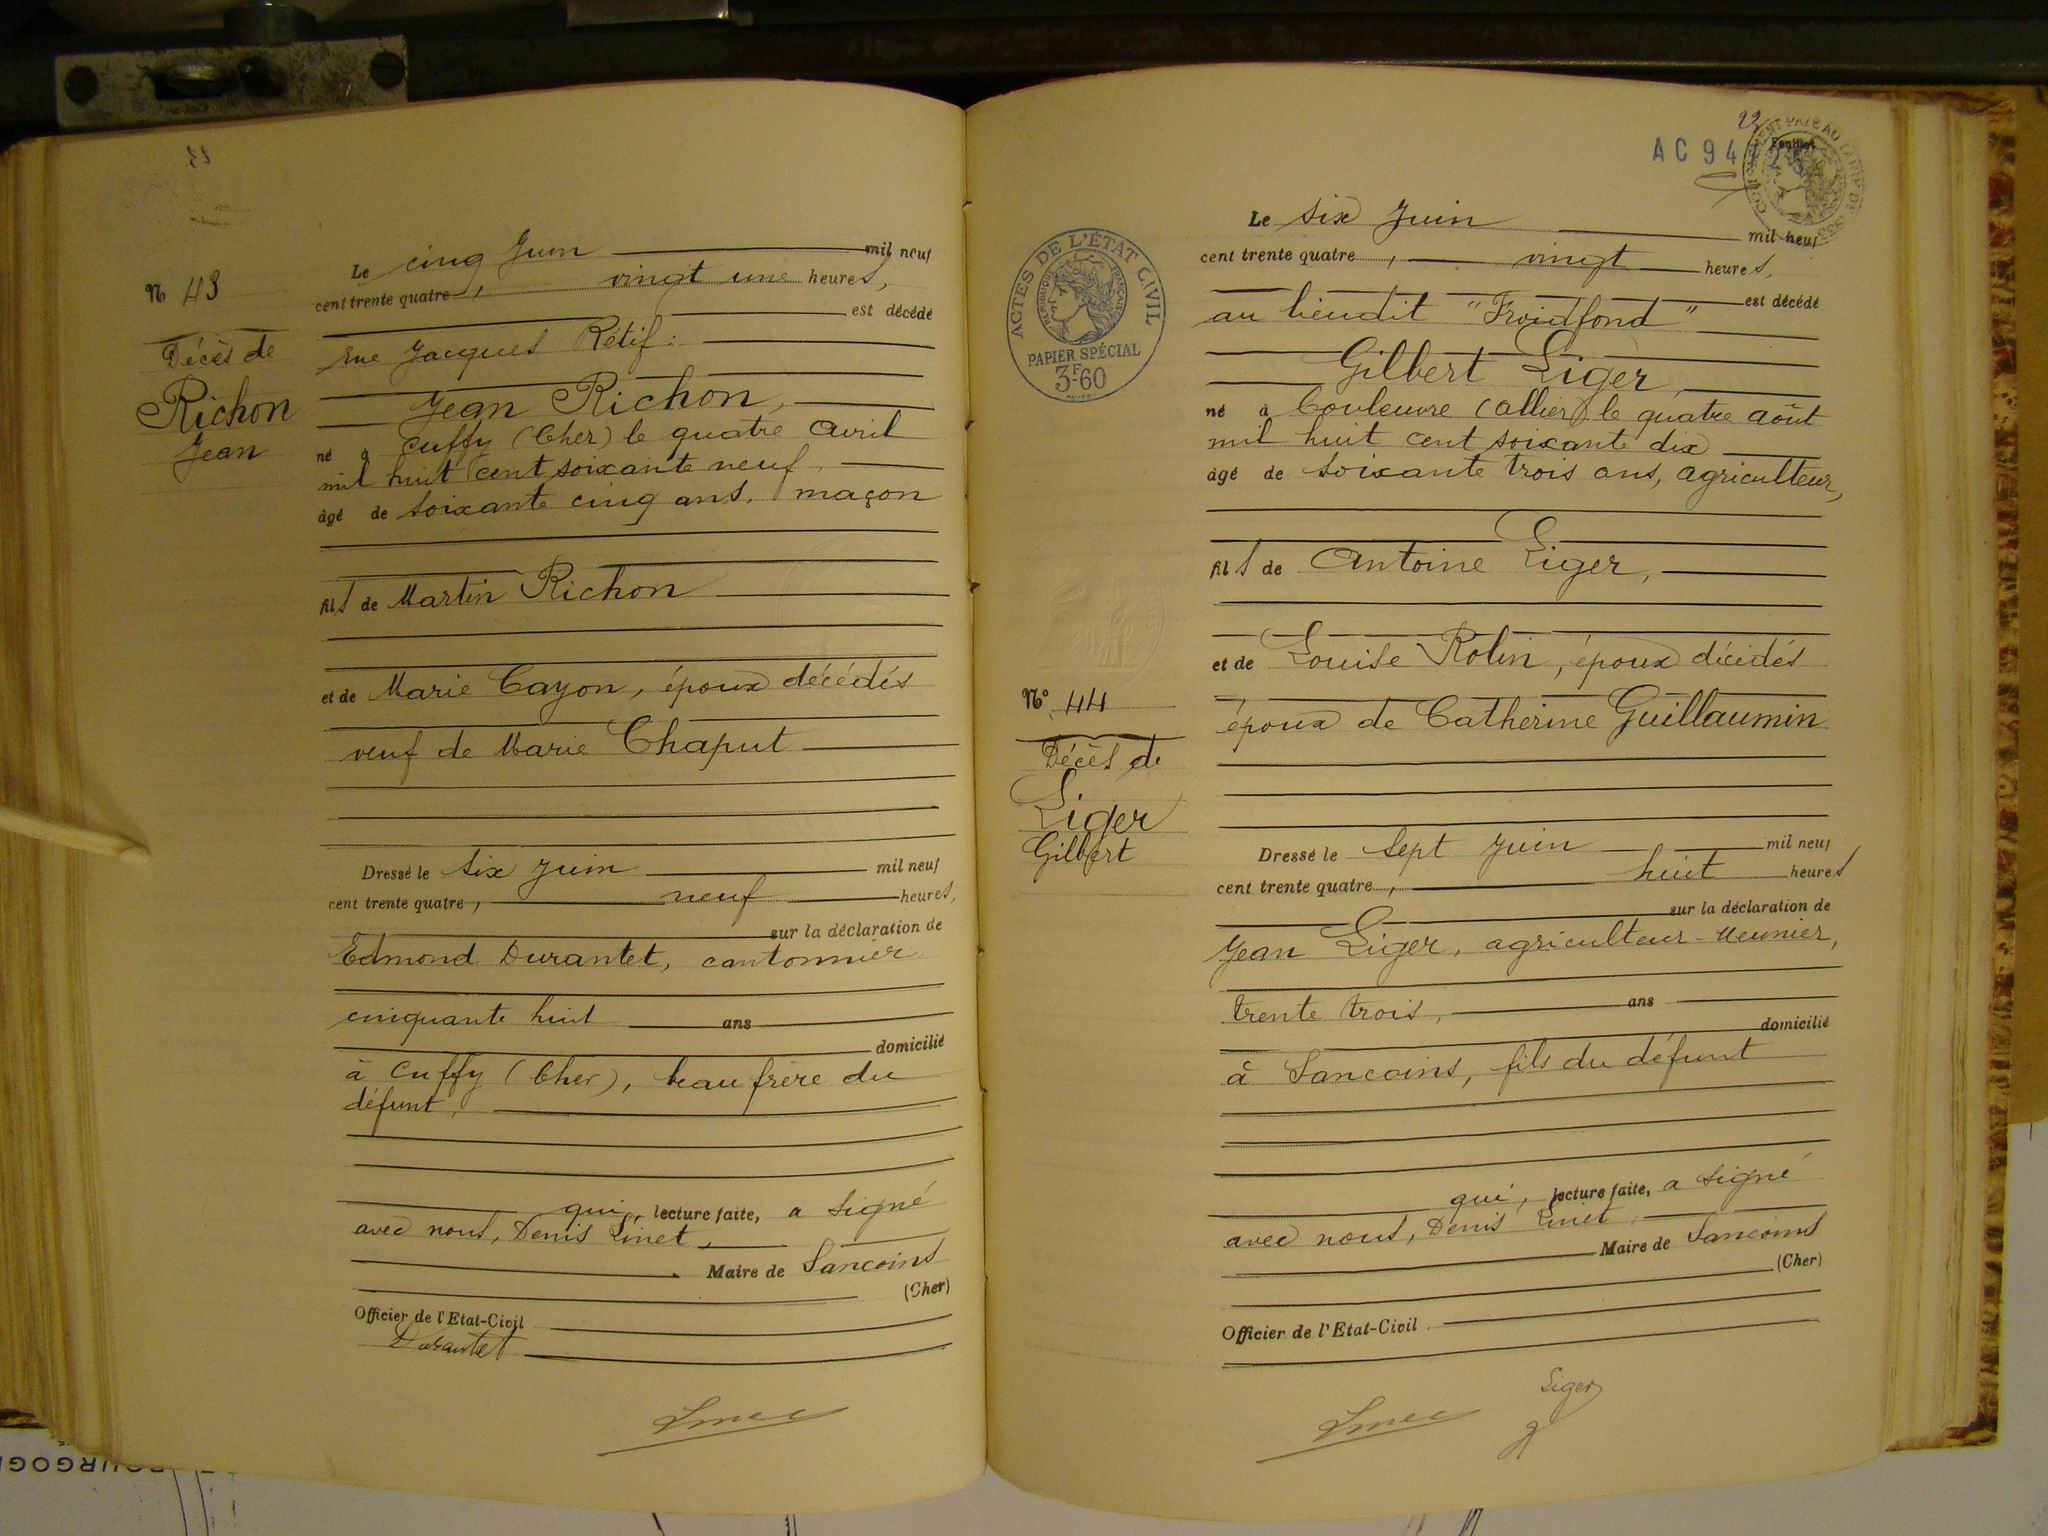 N 43
Décès de
Richon
Jean
Le cinq Juin mil neuf
cent trente quatre, vingt une heures,
est décédé
rue Jacques Rétif:
Jean Richon,
né à Cuffy (Cher) le quatre Avril
mil huit cent soixante neuf,
âgé de soixante cinq ans, maçon
fils de Martin Richon
et de Marie Cayon, époux décédés
veuf de Marie Chaput
Dressé le six Juin mil neuf
cent trente quatre, neuf heures,
sur la déclaration de
Edmond Durantet, cantonnier
cinquante huit ans
domicilié
à Cuffy (Cher), beau frère du
défunt,
qui, lecture faite, a signé
avec nous, Denis Linet,
Maire de Sancoins
(Cher)
Officier de l'Etat-Civil
Durantet
22
AC 94
Feuillet
ACTES DE L'ÉTAT CIVIL
RÉPUBLIQUE FRANÇAISE
PAPIER SPÉCIAL
3F.60
N° 44
Décès de
Liger
Gilbert
Le six Juin mil neuf
cent trente quatre, vingt heures,
est décédé
au lieudit "Froidfond"
Gilbert Liger,
né à Couleuvre (Allier) le quatre août
mil huit cent soixante dix
âgé de soixante trois ans, agriculteur,
fils de Antoine Liger,
et de Louise Rolin, époux décédés
époux de Catherine Guillaumin
Dressé le sept Juin mil neuf
cent trente quatre, huit heures
sur la déclaration de
Jean Liger, agriculteur-Meunier,
trente trois, ans
domicilié
à Sancoins, fils du défunt
qui, lecture faite, a signé
avec nous, Denis Linet,
Maire de Sancoins
(Cher)
Officier de l'Etat-Civil
Liger